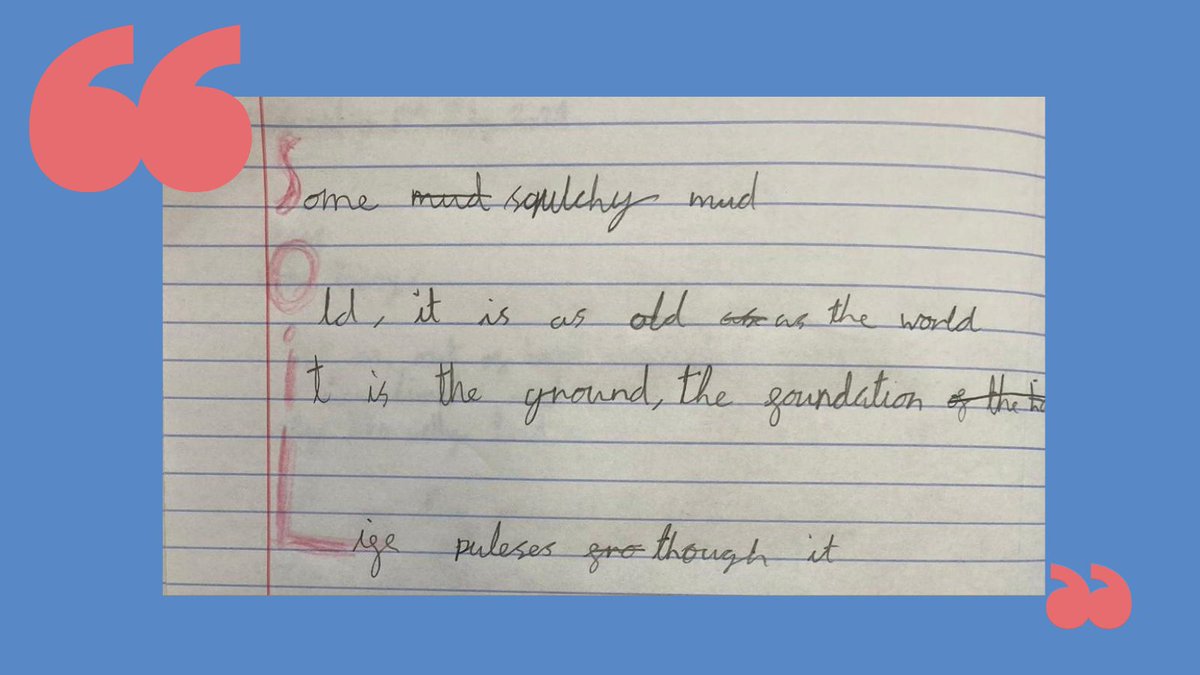 Some mud squlchy mud
Old, it is as old as the world
it is the ground, the foundation of the
Life puleses though it